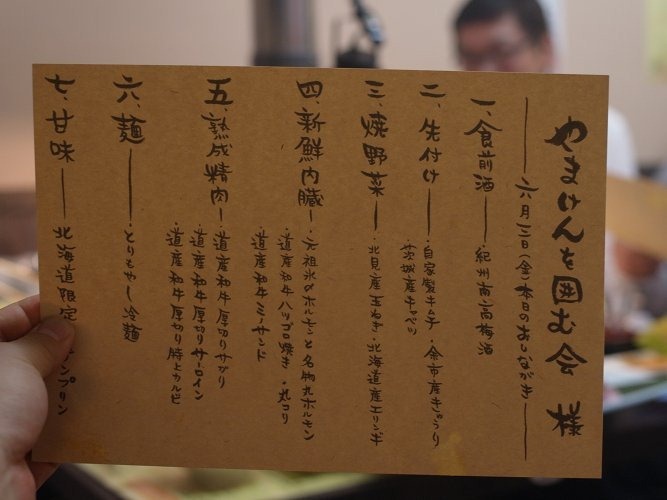 やまけんを囲む会 様
六月三日(金)本日のおしながき
一、食前酒 ― 紀州南高梅酒
二、先付け ― ・自家製キムチ ・余市産きゅうり
・茨城産キャベツ
三、焼野菜 ― ・北見産玉ねぎ ・北海道産エリンギ
四、新鮮内臓 ― ・元祖氷のホルモンと名物丸ホルモン
・道産和牛ハツゴロ焼き ・丸コリ
・道産和牛ミノサンド
五、熟成精肉 ― ・道産和牛厚切りサガリ
・道産和牛厚切りサーロイン
・道産和牛厚切り特上カルビ
六、麺 ― ・とりもやし冷麺
七、甘味 ― 北海道限定 プリン